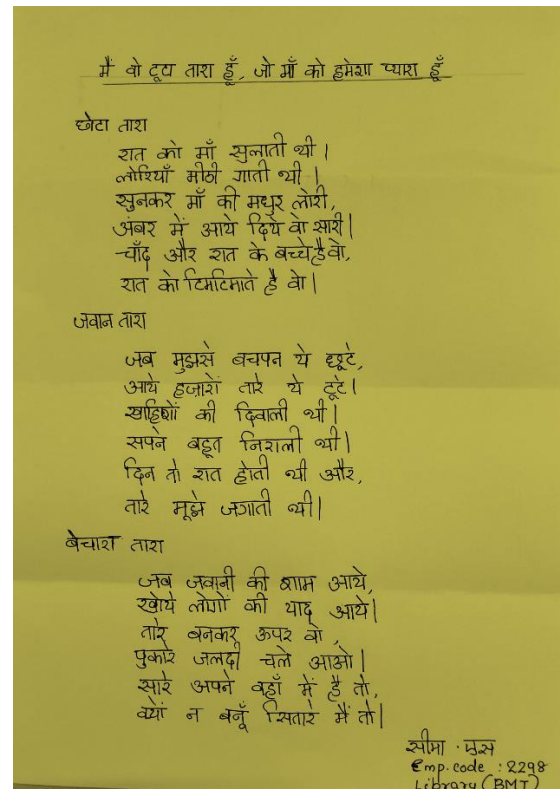 मैं वो टूटा तारा हूँ, जो माँ को हमेशा प्यारा हूँ
छोटा तारा
रात को माँ सुलाती थी।
लोरियाँ मीठी गाती थी।
सुनकर माँ की मधुर लोरी,
अंबर में आये दिये वो सारी।
चाँद और रात के बच्चे है वो,
रात को टिमटिमाते है वो।
जवान तारा
जब मुझसे बचपन ये छूटे,
आये हज़ारों तारे ये टूटे।
ख्वाहिशों की दिवाली थी।
सपने बहूत निराली थी।
दिन तो रात होती थी और,
तारे मूझे जगाती थी।
बेचारा तारा
जब जवानी की शाम आये,
खोये लोगों की याद आये।
तारे बनकर ऊपर वो,
पुकारे जलदी चले आओ।
सारे अपने वहाँ में है तो,
क्यों न बनूँ सितारे मैं तो।
सीमा . एस
Emp. code : 2298
Library (BMT)